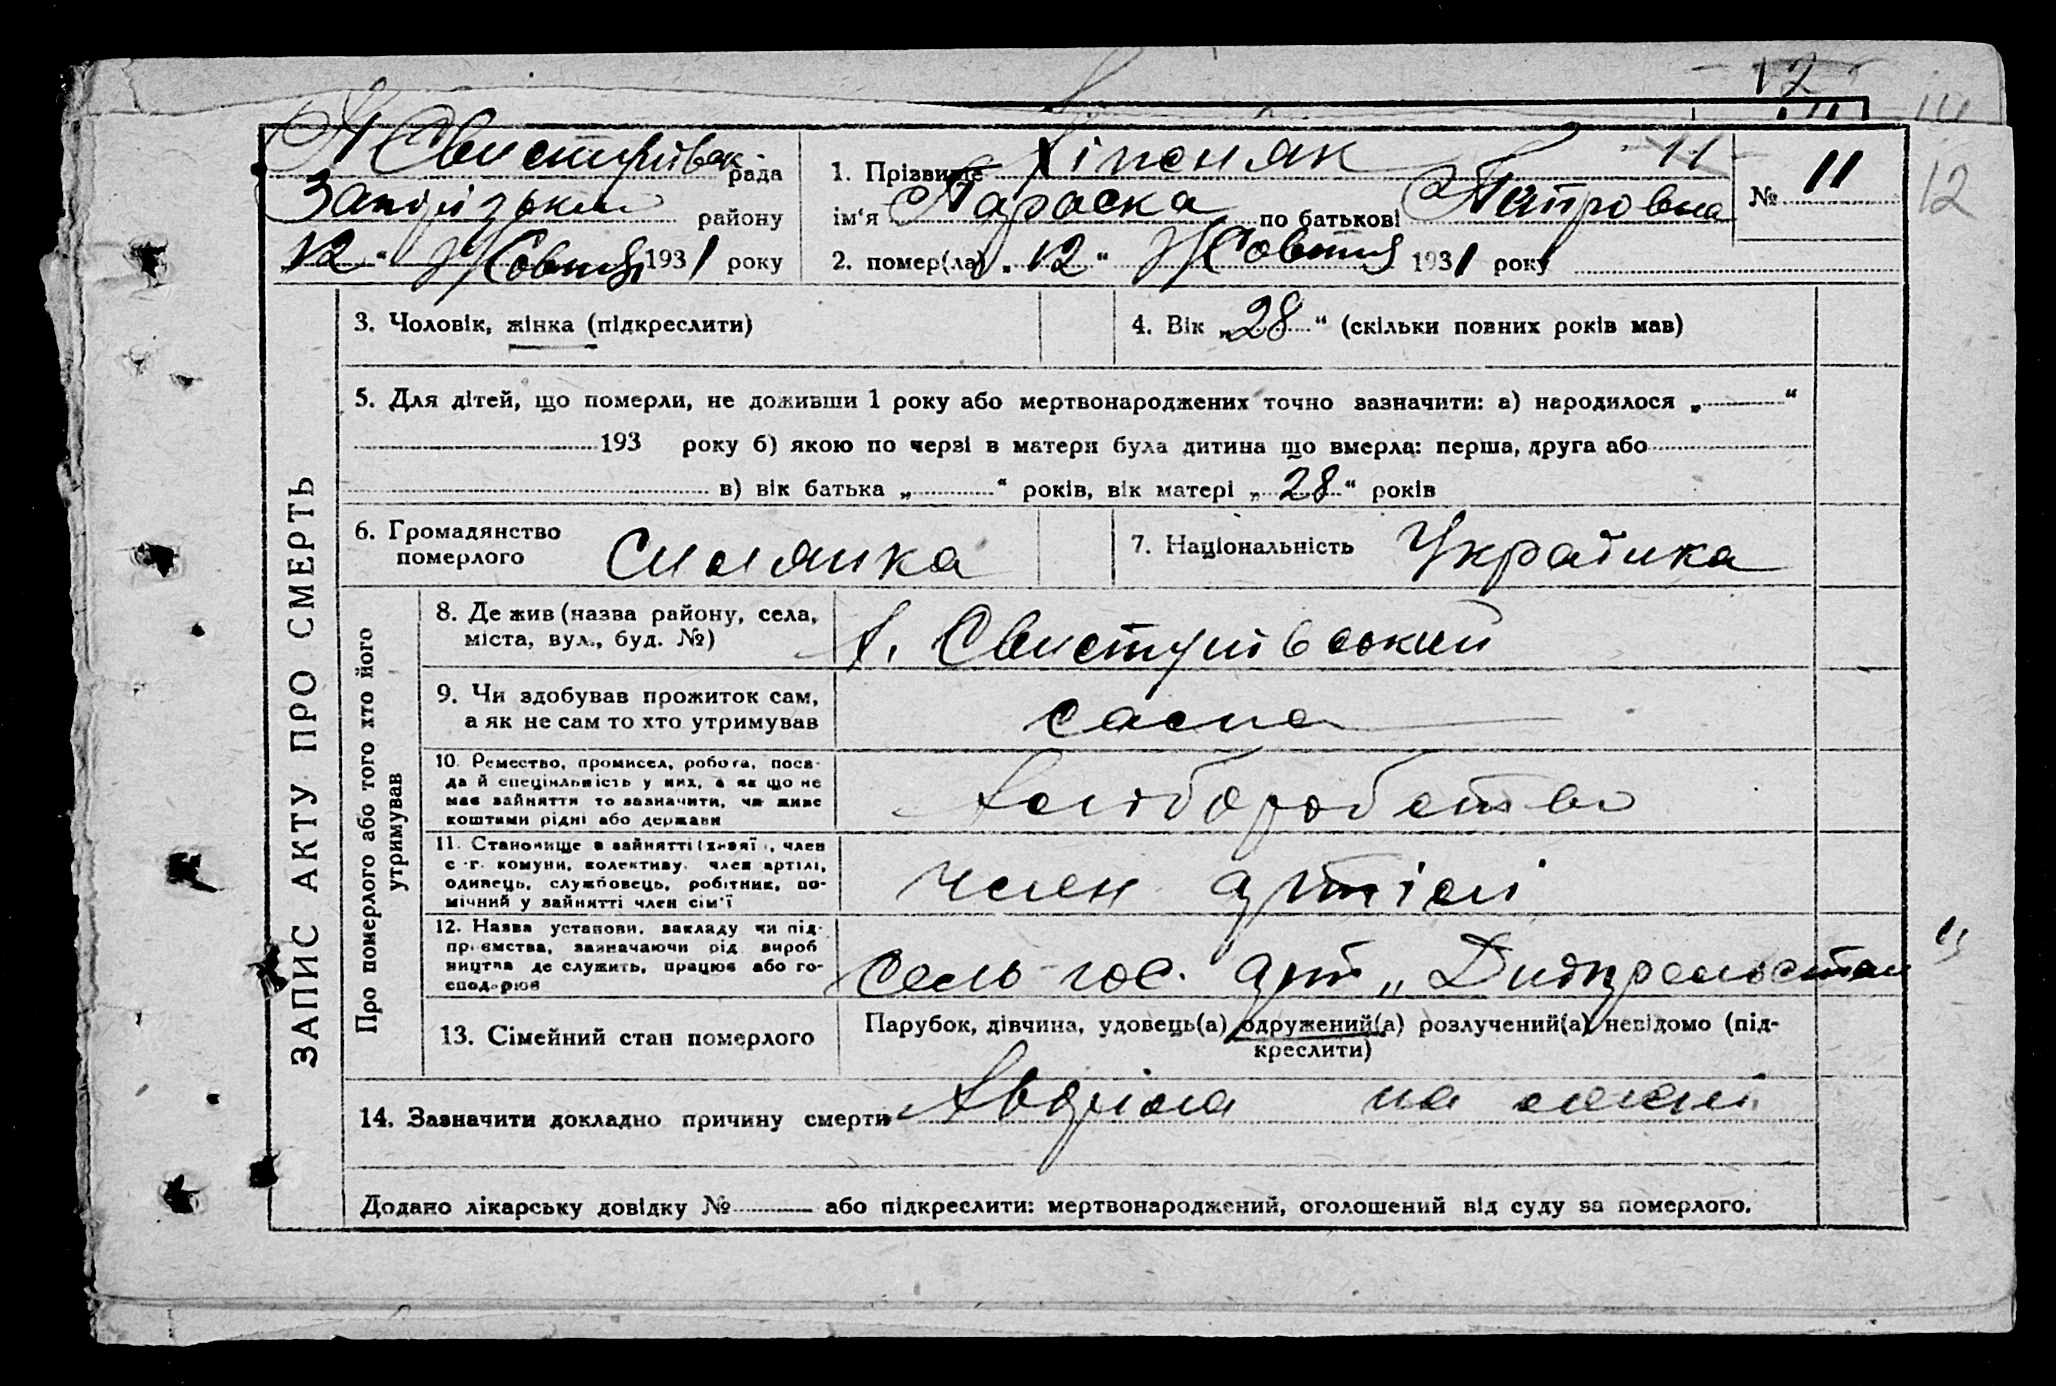 12
Н Свистунівськ рада
Запорізького району
„12“ Жовтня 1931 року
1. Прізвище Хіпсняк 11
ім‘я Параска по батькові Петровна
2. помер(ла) „12“ Жовтня 1931 року
№ 11
12
ЗАПИС АКТУ ПРО СМЕРТЬ
3. Чоловік, жінка (підкреслити)
4. Вік „28“ (скільки повних років мав)
5. Для дітей, що померли, не доживши 1 року або мертвонароджених точно зазначити: а) народилося „ “
193 року б) якою по черзі в матери була дитина що вмерла: перша, друга або
в) вік батька „ “ років, вік матері „28“ років
6. Громадянство
померлого Силянка
7. Національність Украінка
Про померлого або того хто його
утримував
8. Де жив (назва району, села,
міста, вул., буд. №)
х. Свистунівський
9. Чи здобував прожиток сам,
а як не сам то хто утримував
сама
10. Ремество, промисел, робота, поса-
да й спеціяльність у них, а як що не
має зайняття то зазначити, чи живе
коштами рідні або держави
Хліборобство
11. Становище в зайнятті (хазяї, член
с.-г. комуни, колективу, член артілі,
одинець, службовець, робітник, по-
мічний у зайнятті член сім‘ї
член артілі
12. Назва установи, закладу чи під-
приємства, зазначаючи рід вироб
ництва де служить, працює або го-
сподарює
Сель-гос. арт „
13. Сімейний стан померлого
Парубок, дівчина, удовець(а) одружений(а) розлучений(а) невідомо (під-
креслити)
14. Зазначити докладно причину смерти Хворіла на
Додано лікарську довідку № або підкреслити: мертвонароджений, оголошений від суду за померлого.